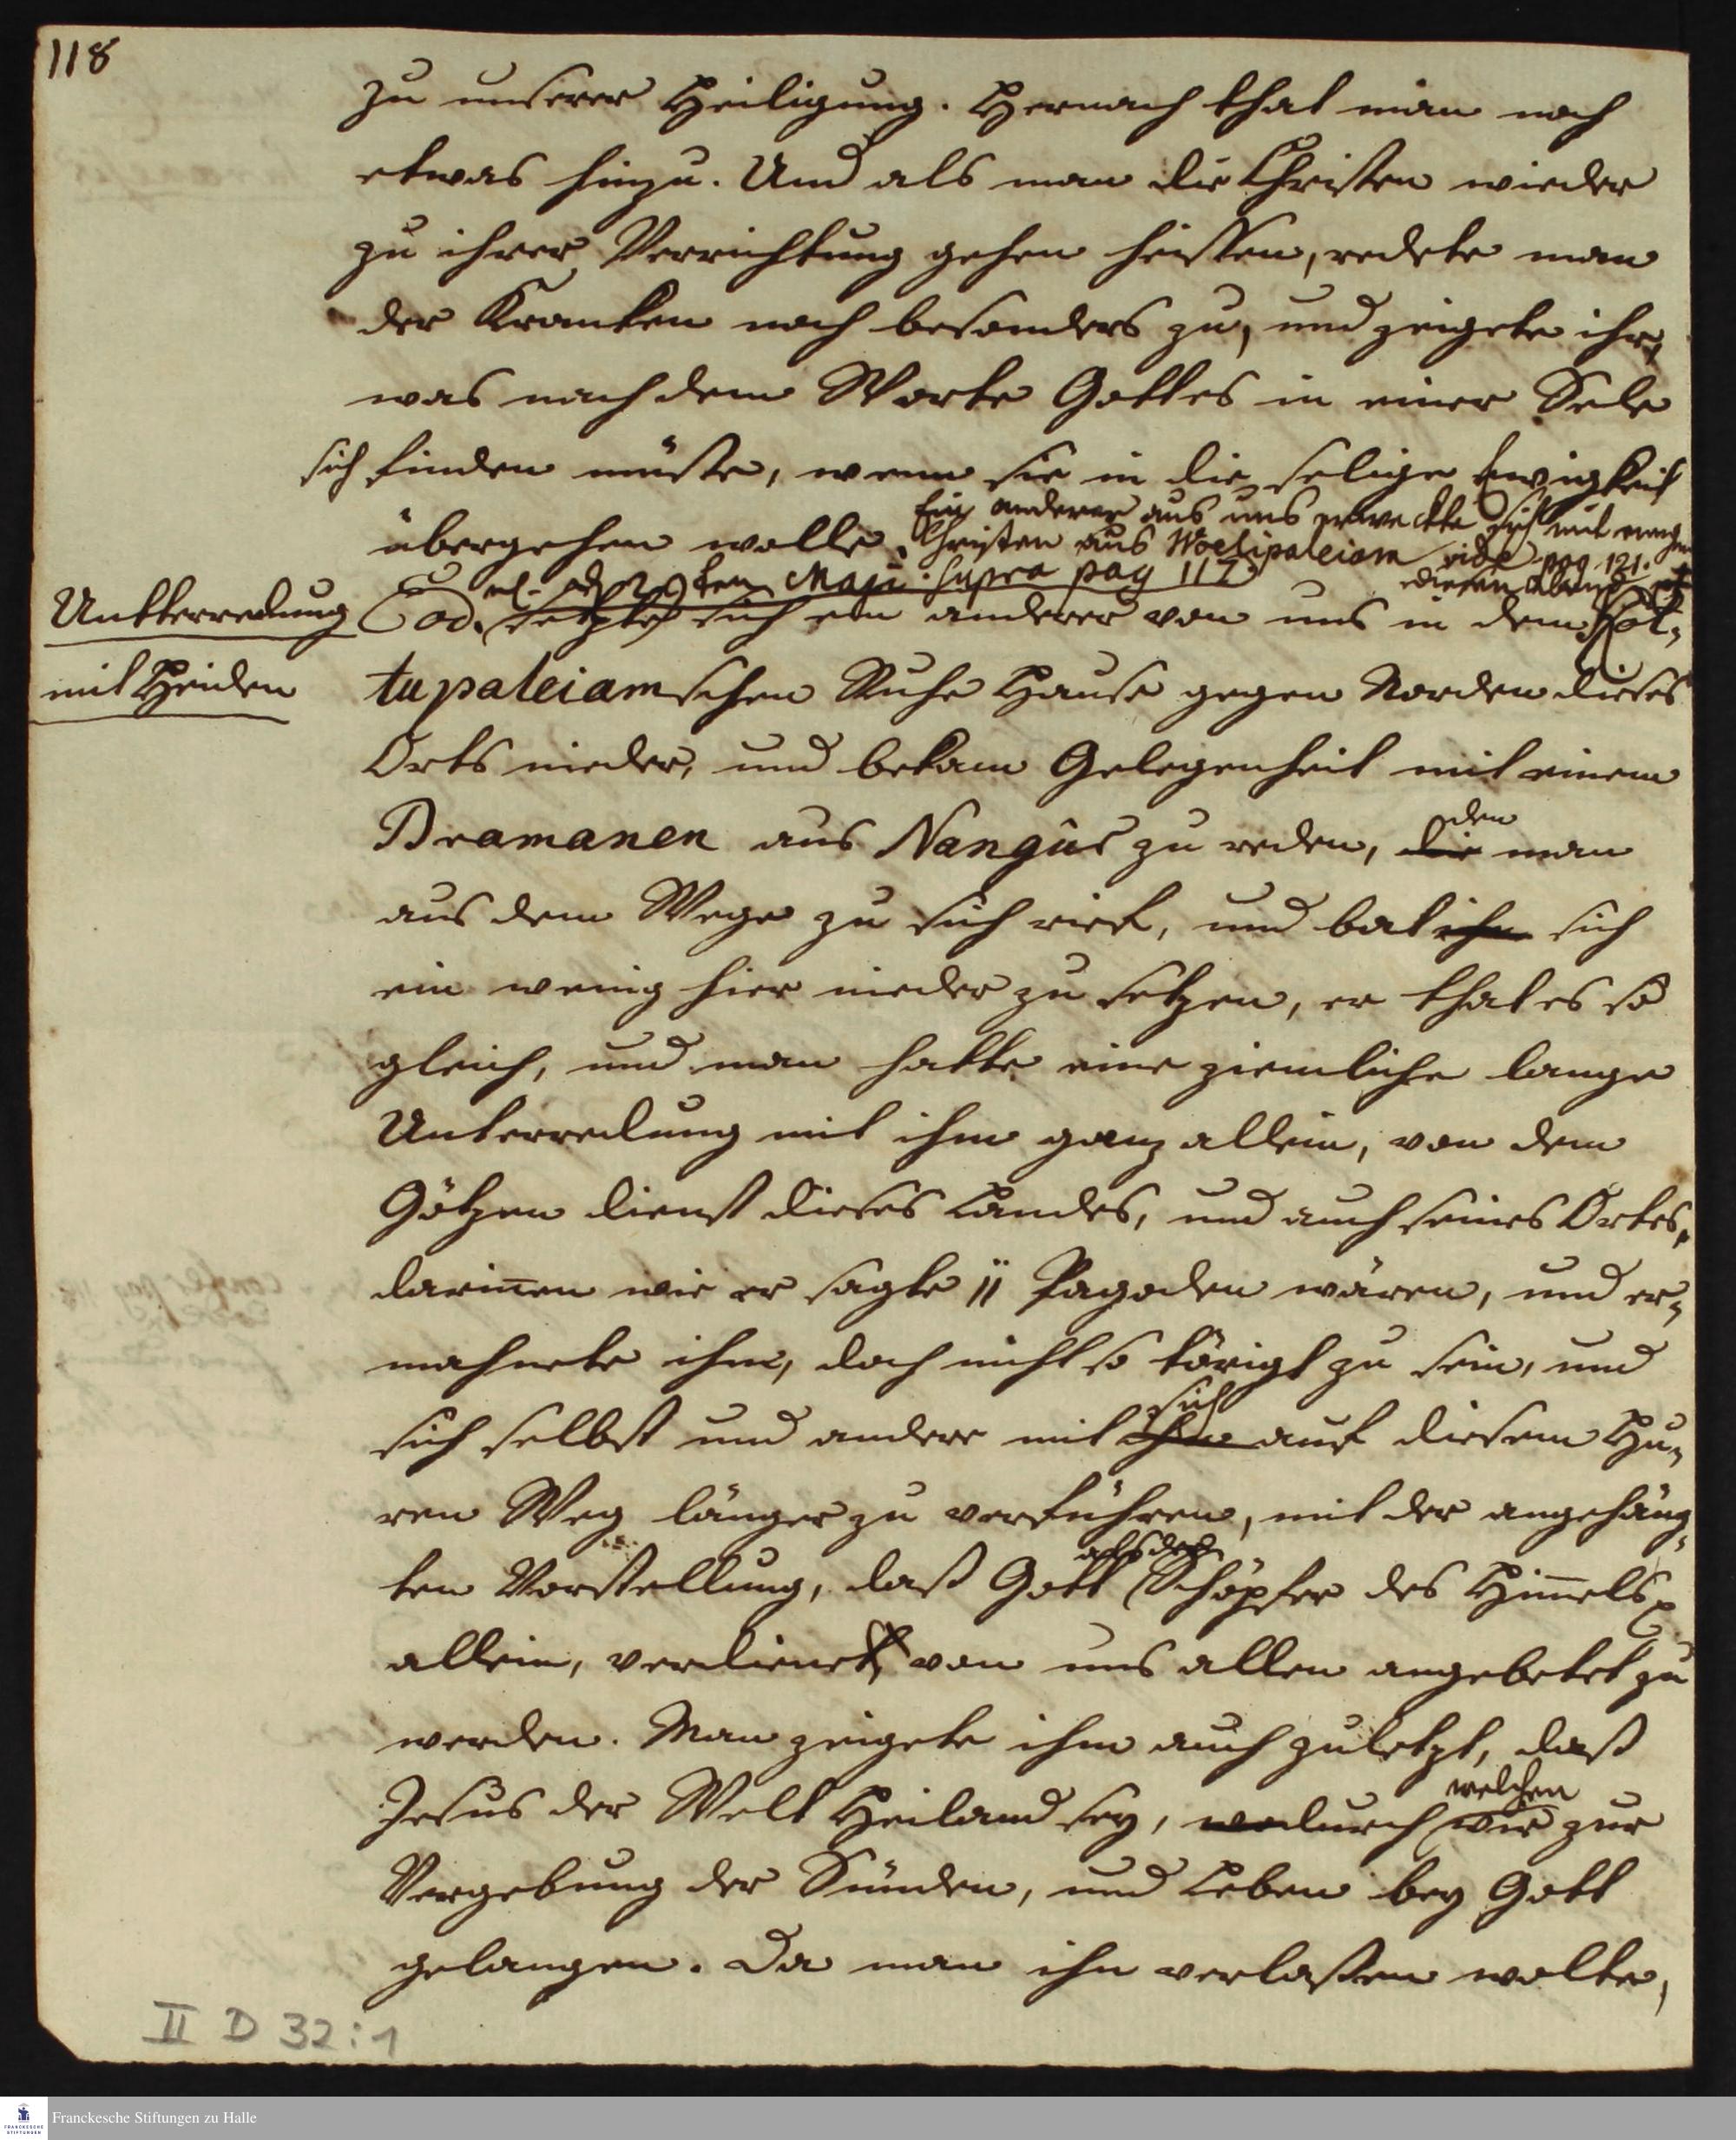 118
zu unserer Heiligung. Hernach that man noch
etwas hinzu. Und als man die Christen wieder
zu ihrer Verrichtung gehen heissen, redete man
der Kranken noch besonders zu, und zeigete ihr,
was nach dem Worte Gottes in einer Sele
sich finden müste, wenn sie in die selige Ewigkeit
übergehen wolle.
Ein anderer aus uns erweckte sich mit
Christen aus Woelipaleiam vide pag 121.
den 29ten Maji. supra pag 117
diesen Abend
Untterredung
mit Heiden
Eod. setzte sich ein anderer von uns in dem Pöt-
tupaleiamschen Ruhe Hause gegen Norden dieses
Orts nieder, und bekam Gelegenheit mit einem
Bramanen aus Nangúr zu reden, die den man
aus dem Wege zu sich rief, und bat ihn sich
ein wenig hier nieder zu setzen, er that es so
gleich, und man hatte eine ziemliche lange
Unterredung mit ihm ganz allein, von dem
Götzen dienst dieses Landes, und auch seines Ortes,
darinen wie er sagte 11 Pagoden wären, und er-
mahnete ihn, doch nicht so törigt zu sein, und
sich selbst und andere mit ihm sich auf diesem Hu-
ren Weg länger zu verführen, mit der angehäng-
ten Vorstellung, daß Gott als der Schöpfer des Himels
allein, verdienet von uns allen angebetet zu
werden. Man zeigete ihm auch zuletzt, daß
Jesus der Welt Heiland sey, wodurch welchen wir zur
Vergebung der Sünden, und Leben bey Gott
gelangen. Da man ihn verlaßen wolte,
II D 32:1
Franckesche Stiftungen zu Halle